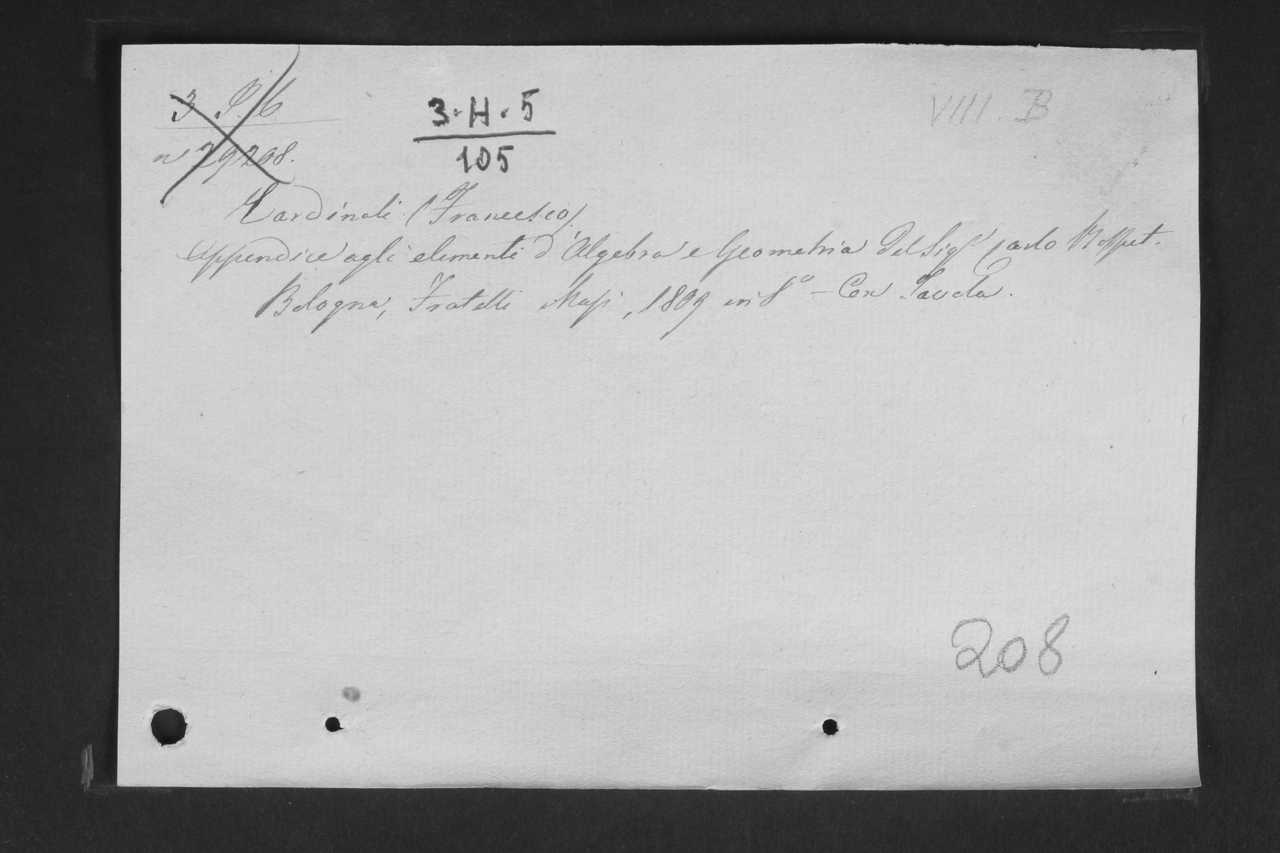 3. P. 6
3-H-5
105
VIII. B
n° 29298.
Cardinali (Francesco)
Appendice agli elementi d'Algebra e Geometria del Sigr paolo
Bologna, Fratelli Masi, 1809 in 8° - Con Tavola.
208